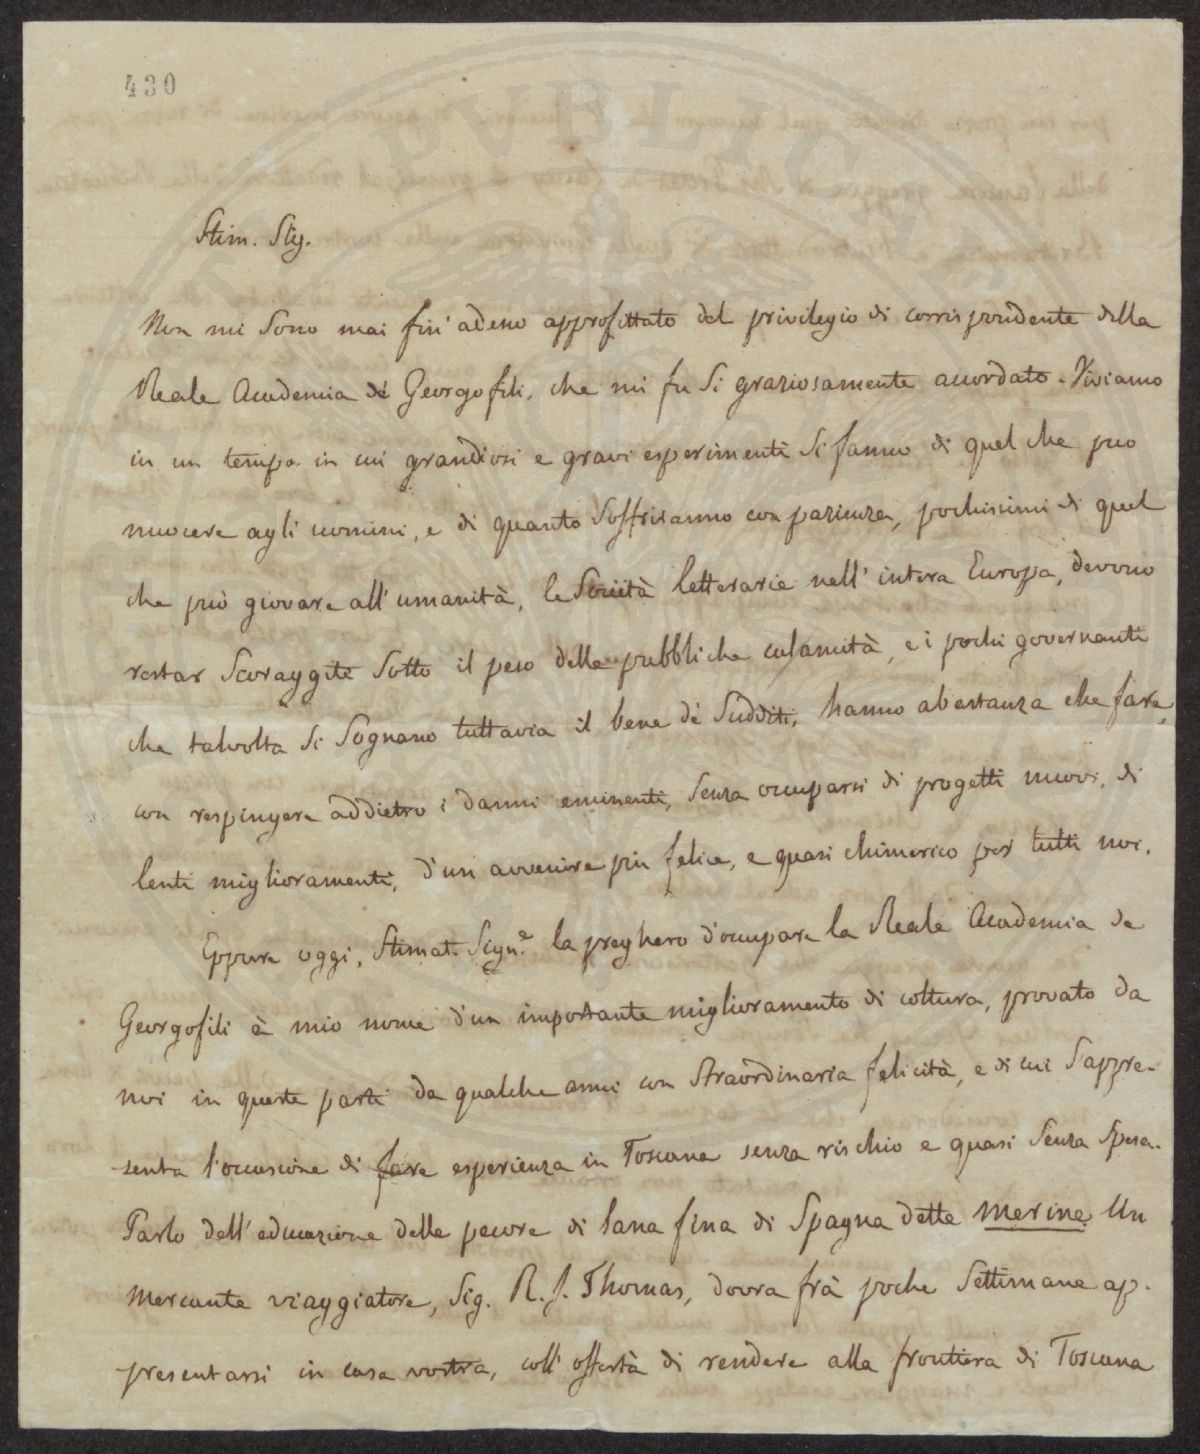 430
Stim. Sig.
Non mi sono mai fin' adesso approfittato del privilegio di corrispondente della
Reale Academia dé Georgofili, che mi fu si graziosamente accordato. Viviamo
in un tempo in cui grandiosi e gravi esperimenti si fanno di quel che può
nuocere agli uomini, e di quanto soffriranno con pazienza, pochissimi di quel
che può giovare all' umanità, le Società letterarie nell' intera Europa, devono
restar scoraggite sotto il peso delle pubbliche calamità, e i pochi governanti
che talvolta si sognano tuttavia il bene dé sudditi, hanno abastanza che fare,
con respingere addietro i danni eminenti, senza occuparsi di progetti nuovi, di
lenti miglioramenti, d'un avvenire piu felice, e quasi chimerico per tutti noi.
Eppure oggi, Stimat. Sign.e la preghero d'occupare la Reale Academia de
Georgofili à mio nome d'un importante miglioramento di coltura, provato da
noi in queste parti da qualche anni con straordinaria felicità, e di cui s'appre-
senta l'occasione di fare esperienza in Toscana senza rischio e quasi senza spesa.
Parlo dell' educazione delle pecore di lana fina di Spagna dette merine. Un
mercante viaggiatore, Sig. R. J. Thomas, dovra frà poche settimane ap-
presentarsi in casa vostra, coll' offertà di rendere alla frontiera di Toscana
PVBLIC